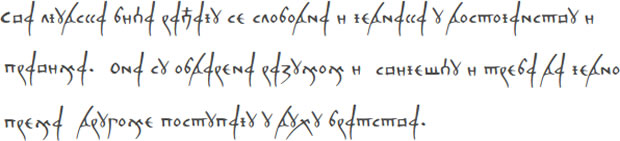 Сва људска бића рађају се слободна и једнака у достојанству и
правима. Она су обдарена разумом и свијешћу и треба да једно
према другоме поступају у духу братства.